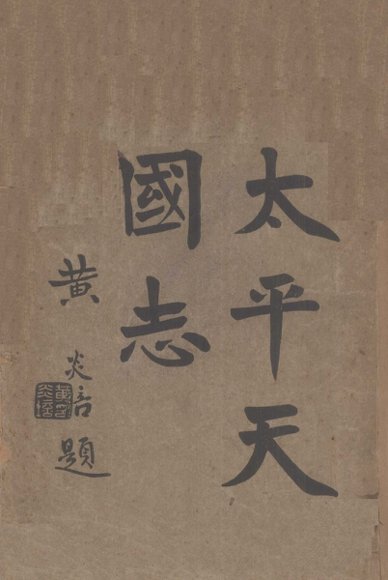 太平天
國志
黄炎培題